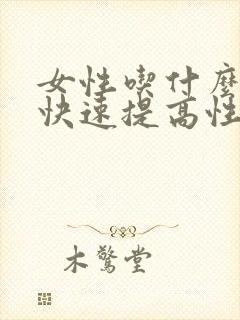 女性喫什麼
快速提高性
木驚堂